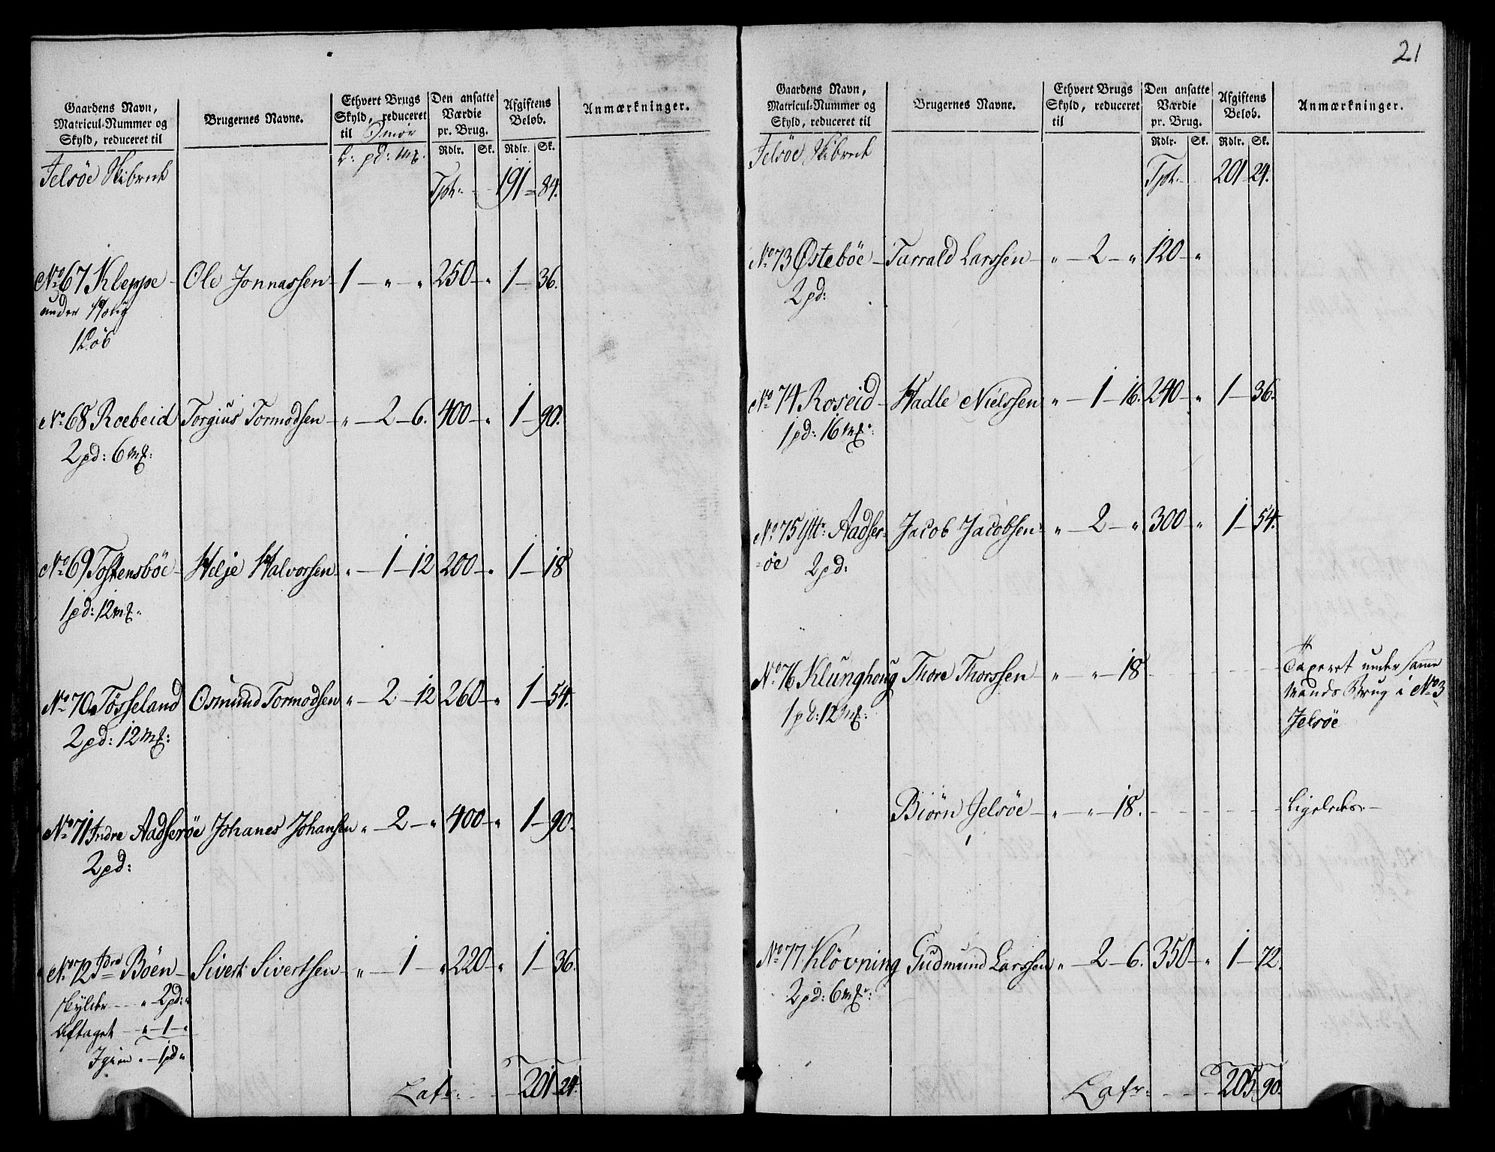 21
Gaardens Navn, Matricul-Nummer og Skyld, reduceret til
Brugernes Navne.
Ethvert Brugs Skyld, reduceret til Smør
L: pd: mk.
Den ansatte Værdie pr. Brug. Rdlr. Sk.
Afgiftens Beløb. Rdlr. Sk.
Anmærkninger.
Jelsøe Skibrede Tpt. 191 84.
No 67 Kleppe Ole Jonnassen 1 " " 250 " 1 36.
under
No 68 Roebeid Torgius Tormodsen " 2 6. 400 " 1 90.
2 pd: 6 mk:
No 69 Tostensbøe Helje Halvorsen " 1 12 200 " 1 18
1 pd: 12 mk.
No 70 Tøsseland Osmund Tormodsen " 2 12 260 " 1 54.
2 pd: 12 mk:
No 71 Indre Aadserøe Johanes Johansen " 2 " 400 " 1 90.
2 pd:
No 72 Bøen Sivert Sivertsen " 1 " 220 " 1 36.
skylder " 2 pd: "
Aftaget " 1 "
Igien " 1 pd "
Latr: 201 24.
Gaardens Navn, Matricul-Nummer og Skyld, reduceret til
Brugernes Navne.
Ethvert Brugs Skyld, reduceret til
Den ansatte Værdie pr. Brug. Rdlr. Sk.
Afgiftens Beløb. Rdlr. Sk.
Anmærkninger.
Jelsøe Skibrede Tpt. 201 24.
No 73 Østebøe Tarrald Larssen " 2 " 120 "
2 pd:
No 74 Roseid Hadle Nielssen " 1 16. 240 " 1 36.
1 pd: 16 mk:
No 75 Ytr: Aadser- Jacob Jacobsen " 2 " 300 " 1 54.
øe 2 pd:
No 76 Klunghoug Thore Thorssen " " 18. Taxeret under samme
1 pd: 12 mk: Mands Brug i No 3
Jelsøe
Biørn Jelsøe " " 18. Ligeledes
No 77 Kløvning Gudmund Larssen " 2 6. 350 " 1 72.
2 pd: 6 mk:
Latr: 205 90.